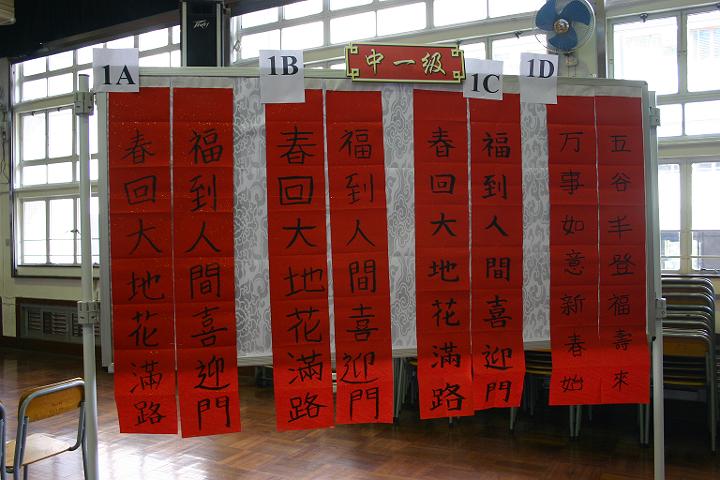 中一級
1A
春回大地花滿路
福到人間喜迎門
1B
春回大地花滿路
福到人間喜迎門
1C
春回大地花滿路
福到人間喜迎門
1D
万事如意新春始
五谷丰登福壽來